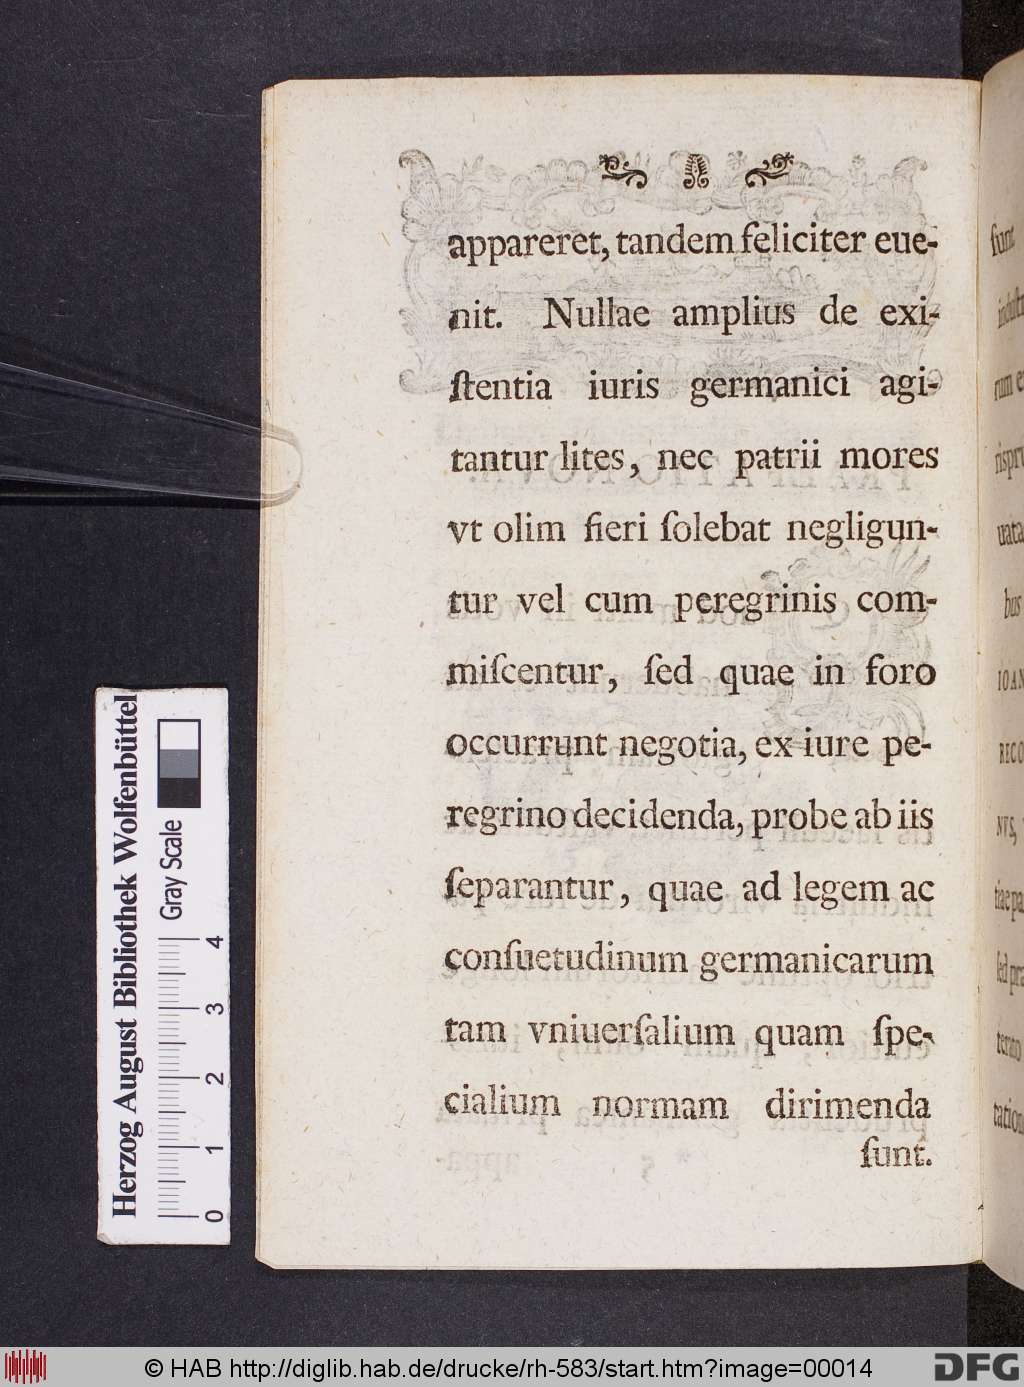 appareret, tandem feliciter eue-
nit. Nullae amplius de exi-
ſtentia iuris germanici agi-
tantur lites, nec patrii mores
vt olim fieri ſolebat negligun-
tur vel cum peregrinis com-
miſcentur, ſed quae in foro
occurrunt negotia, ex iure pe-
regrino decidenda, probe ab iis
ſeparantur, quae ad legem ac
conſuetudinum germanicarum
tam vniuerſalium quam ſpe-
cialium normam dirimenda
ſunt.
ſunt
rum
bus
NVS,
Herzog August Bibliothek Wolfenbüttel
Gray Scale
0 1 2 3 4
© HAB http://diglib.hab.de/drucke/rh-583/start.htm?image=00014
DFG